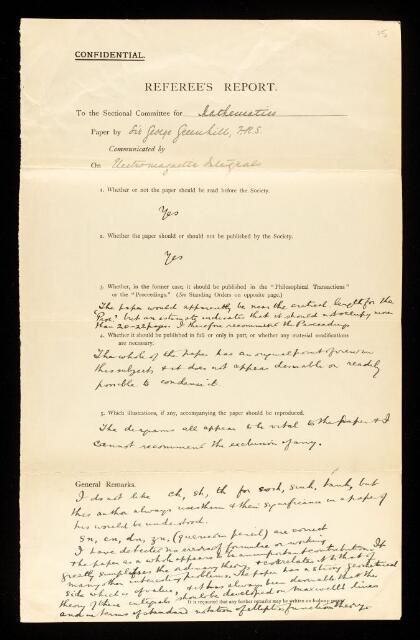 15
CONFIDENTIAL.
REFEREE'S REPORT.
To the Sectional Committee for Mathematics
Paper by Sir George Greenhill, F.R.S.
Communicated by
On Electromagnetic Integrals
1. Whether or not the paper should be read before the Society.
Yes
2. Whether the paper should or should not be published by the Society.
Yes
3. Whether, in the former case, it should be published in the "Philosophical Transactions"
or the "Proceedings." (See Standing Orders on opposite page.)
The paper would apparently be near the critical length for the
"Proc." but an estimate indicates that it should not occupy more
than 20-22 pages. I therefore recommend the Proceedings
4. Whether it should be published in full or only in part, or whether any material modifications
are necessary.
The whole of the paper has an original point of view on
this subject, & it does not appear desirable or readily
possible to condense it.
5. Which illustrations, if any, accompanying the paper should be reproduced.
The diagrams all appear to be vital to the paper & I
cannot recommend the exclusion of any.
General Remarks.
I do not like ch, sh, th for cosh, sinh, tanh, but
this author always uses them & their significance in a paper of
his would be understood.
Sn, cn, dn, zn, (query on pencil) are correct
I have detected no errors of formulae or working
The paper as a whole appears to be an important contribution. It
greatly simplifies the ordinary theory, & correlates it to that of
many other interesting problems. The paper has a strong geometrical
side which is of value, & it has always been desirable that the
theory of these integrals should be developed on Maxwell's lines
and in terms of standard notation of elliptic function theory.
It is requested that any further remarks may be written on